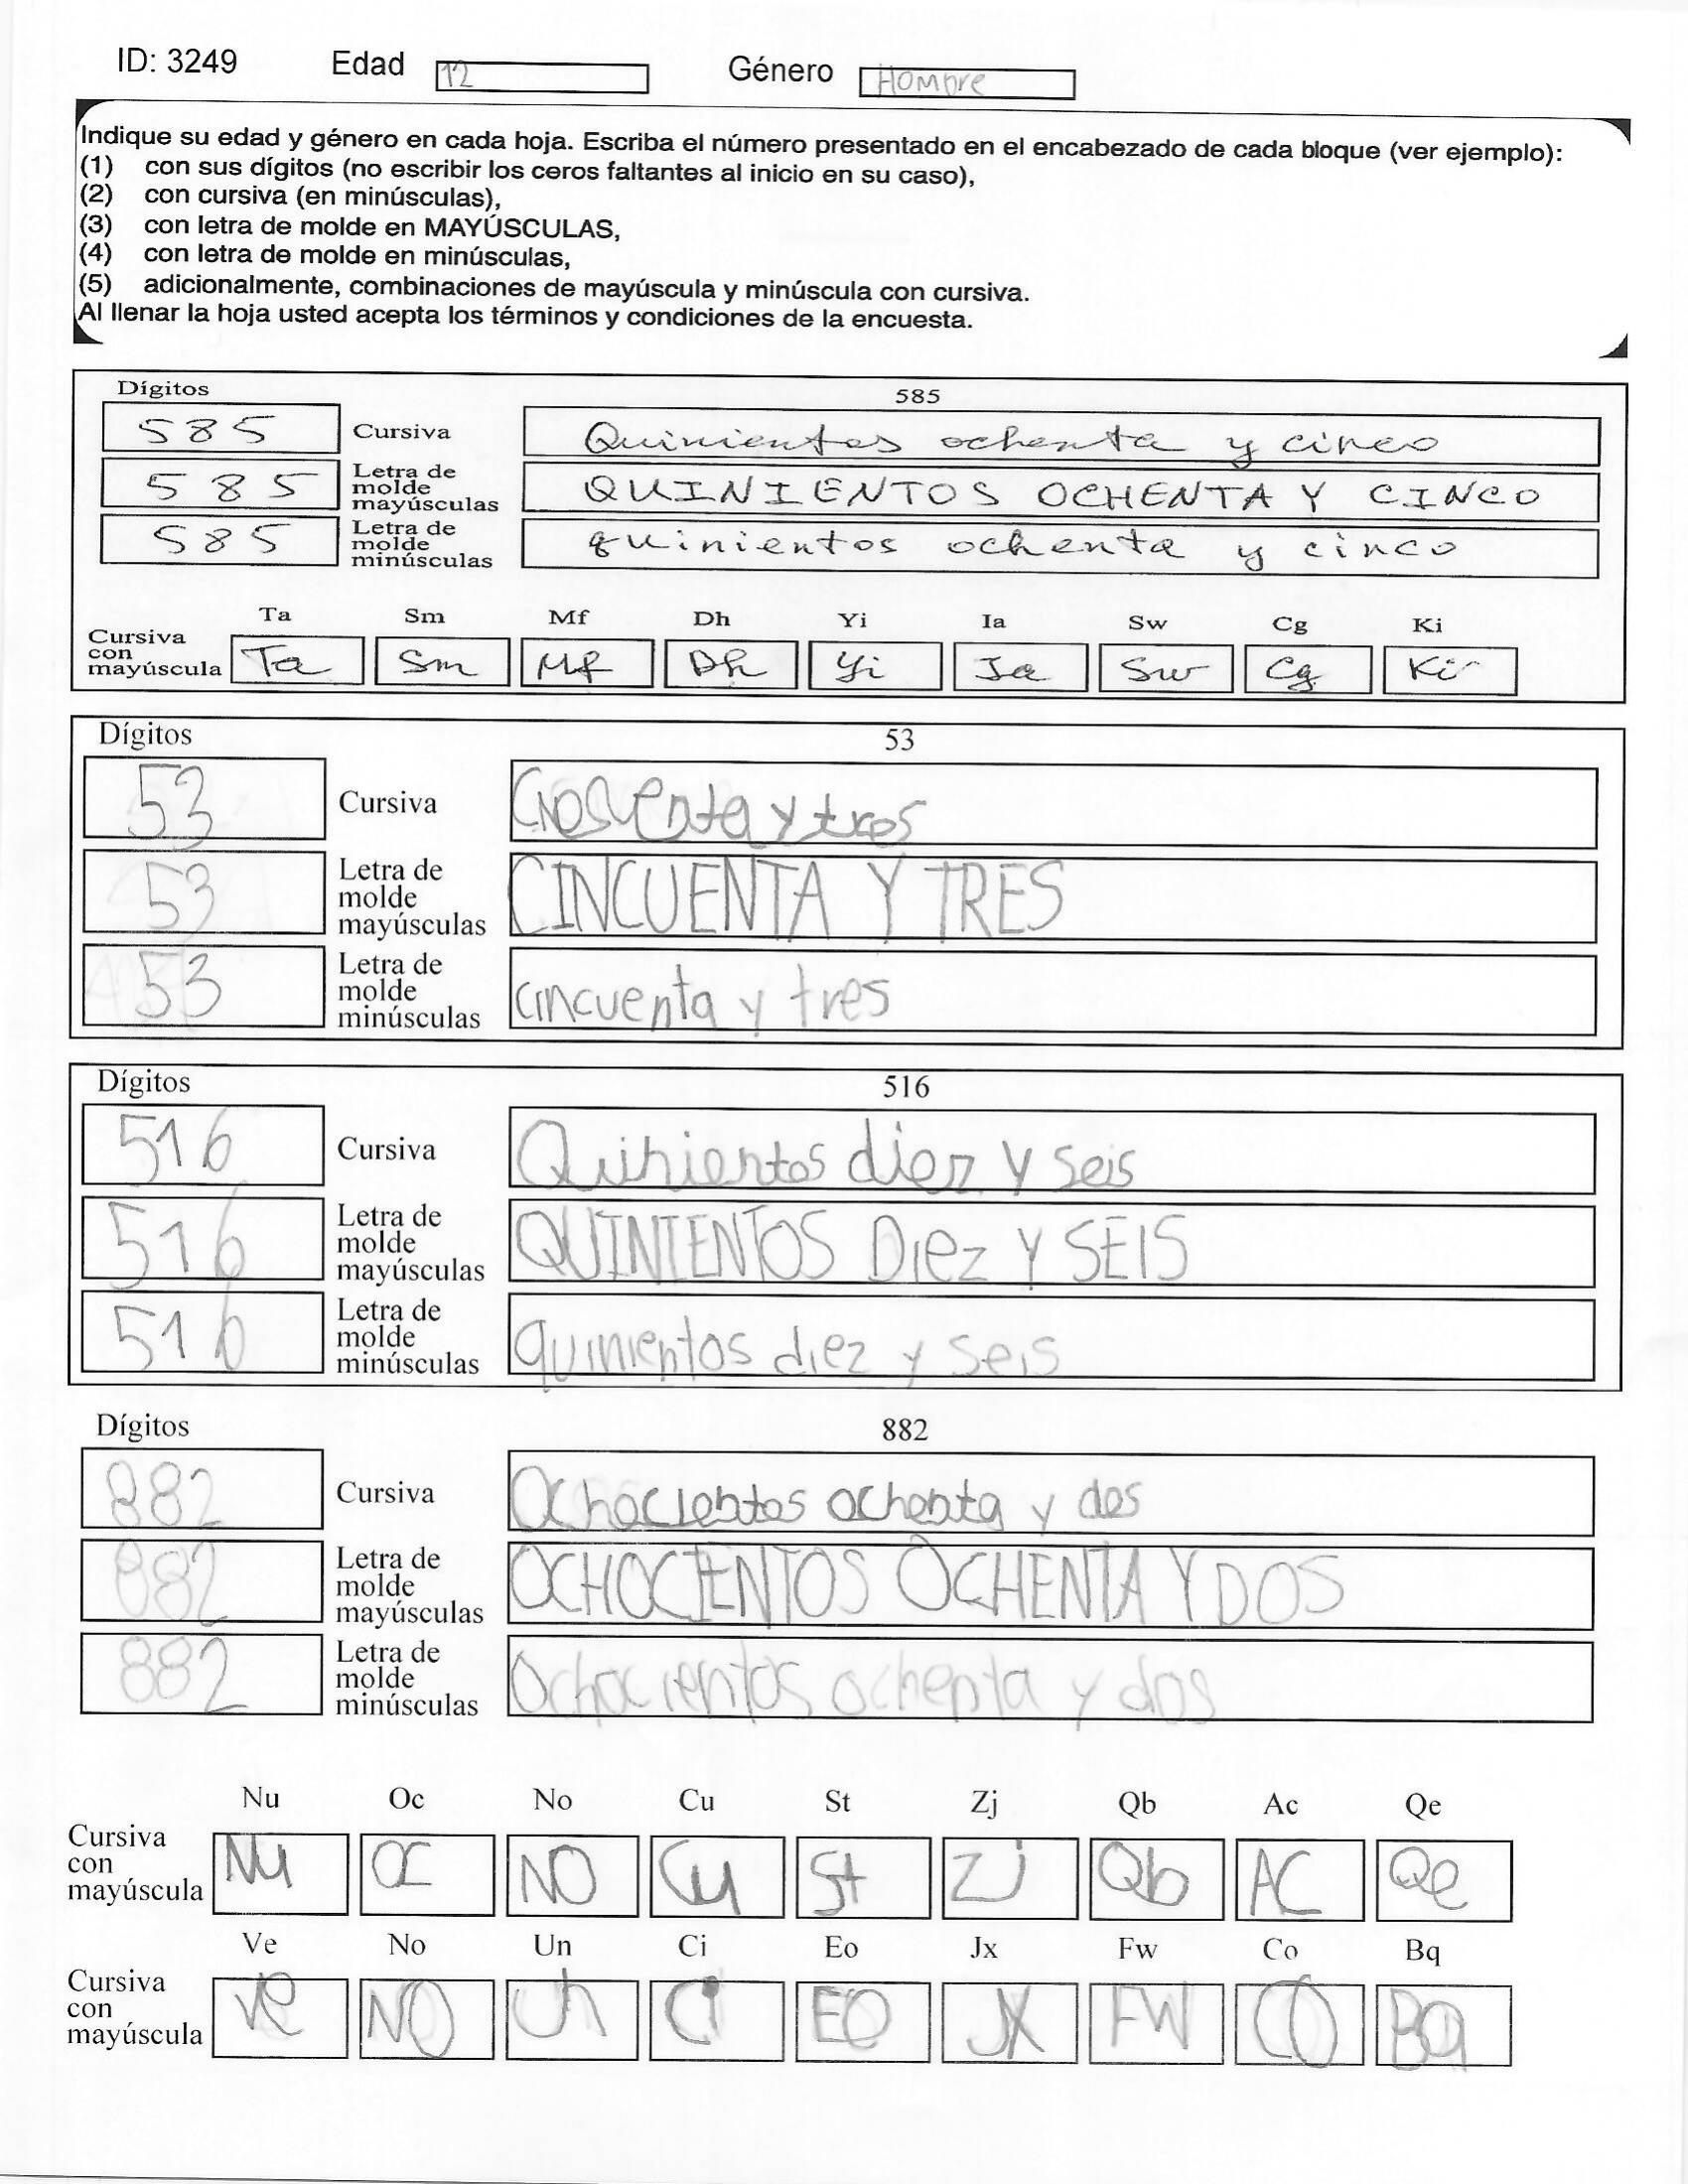 ID: 3249 Edad 12 Género Hombre
Indique su edad y género en cada hoja. Escriba el número presentado en el encabezado de cada bloque (ver ejemplo):
(1) con sus dígitos (no escribir los ceros faltantes al inicio en su caso),
(2) con cursiva (en minúsculas),
(3) con letra de molde en MAYÚSCULAS,
(4) con letra de molde en minúsculas,
(5) adicionalmente, combinaciones de mayúscula y minúscula con cursiva.
Al llenar la hoja usted acepta los términos y condiciones de la encuesta.
Dígitos 585
585 Cursiva Quinientos ochenta y cinco
585 Letra de molde mayúsculas QUINIENTOS OCHENTA Y CINCO
585 Letra de molde minúsculas quinientos ochenta y cinco
Ta Sm Mf Dh Yi Ia Sw Cg Ki
Cursiva con mayúscula Ta Sm Mf Dh Yi Ia Sw Cg Ki
Dígitos 53
53 Cursiva y tres
53 Letra de molde mayúsculas CINCUENTA Y TRES
53 Letra de molde minúsculas cincuenta y tres
Dígitos 516
516 Cursiva Quinientos diez y seis
516 Letra de molde mayúsculas QUINIENTOS Diez Y SEIS
516 Letra de molde minúsculas quinientos diez y seis
Dígitos 882
882 Cursiva Ochocientos ochenta y dos
882 Letra de molde mayúsculas OCHOCIENTOS OCHENTA Y DOS
882 Letra de molde minúsculas Ochocientos ochenta y dos
Nu Oc No Cu St Zj Qb Ac Qe
Cursiva con mayúscula Nu OC NO Cu St Zj Qb AC Qe
Ve No Un Ci Eo Jx Fw Co Bq
Cursiva con mayúscula Ve NO Un Ci EO JX FW CO Bq